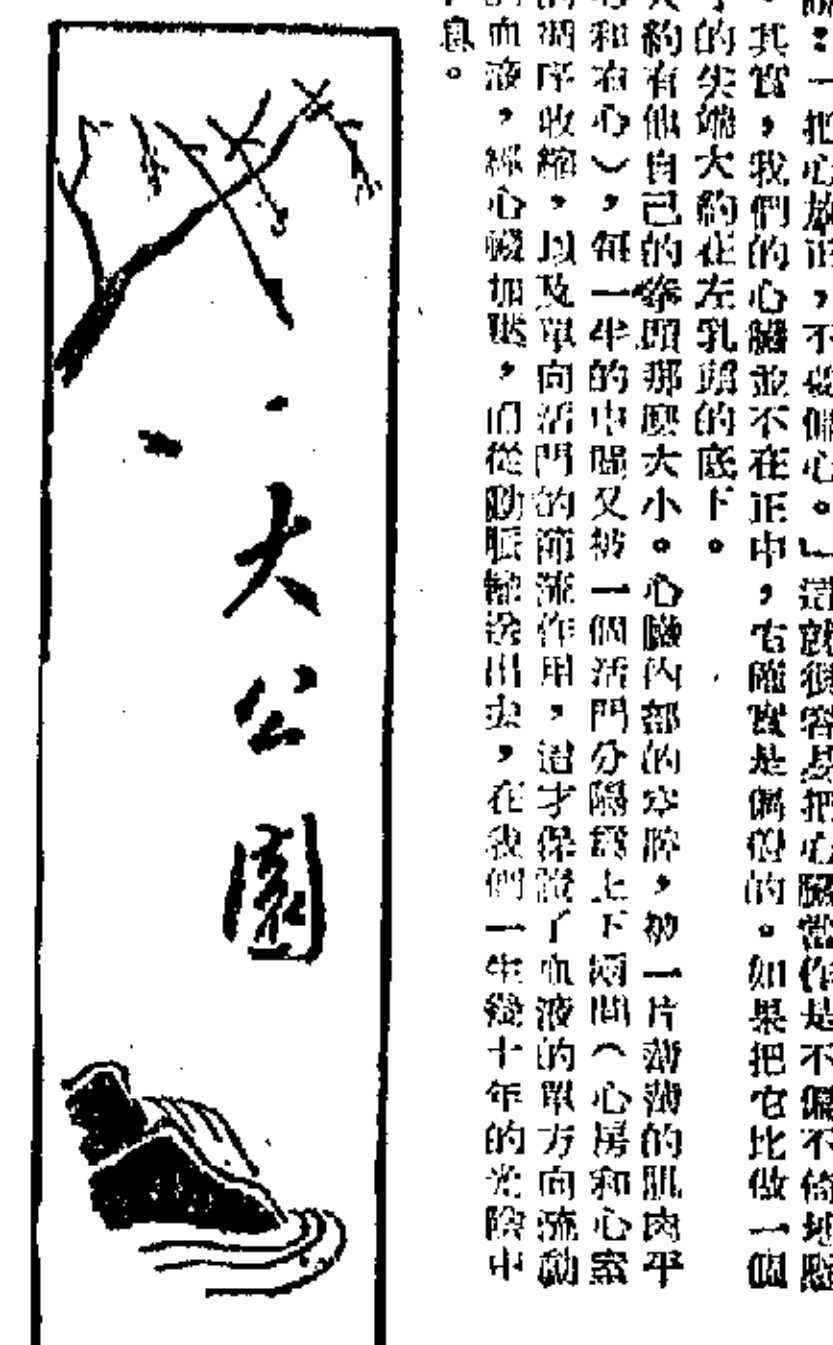 ：一把心放正，不要偏心。」這就很容易把心臟當作是不偏不倚地
。其實，我們的心臟並不在正中，它確實是偏的。如果把它比做一個
的尖端大約在左乳頭的底下。
約有他自己的拳頭那麼大小。心臟內部的空腔，被一片薄薄的肌肉平
和右心），每一半的中間又被一個活門分隔爲上下兩間（心房和心室
序收縮，以及單向活門的節流作用，這才保證了血液的單方向流動
血液，經心臟加壓，而從動脈輸送出去，在我們一生幾十年的光陰中
息。
大公園